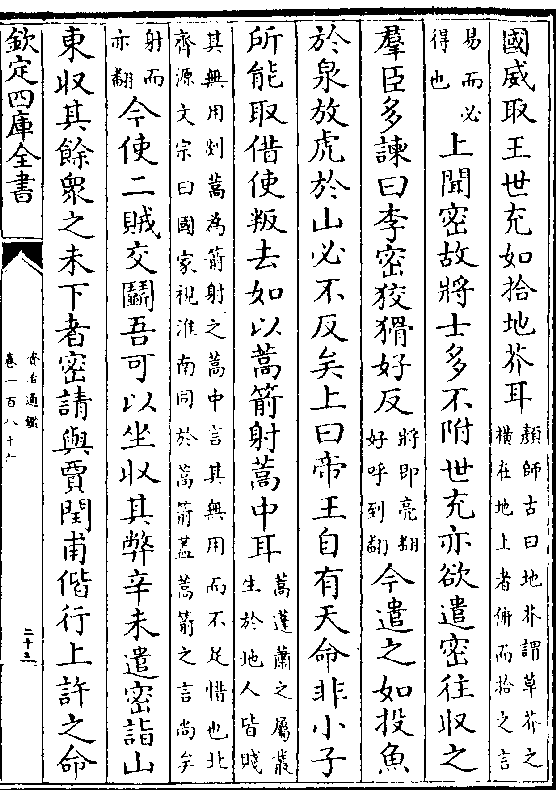 國威取王世充如拾地芥耳顏師古曰地芥謂草芥之橫在地上者俯而拾之言
易而必得也上聞密故將士多不附世充亦欲遣密往收之
羣臣多諫曰李密狡猾好反將即亮翻好呼到翻今遣之如投魚
於泉放虎於山必不反矣上曰帝王自有天命非小子
所能取借使叛去如以蒿箭射蒿中耳蒿蓬蕭之屬叢生於地人皆賤
其無用剡蒿為箭射之蒿中言其無用而不足惜也北齊源文宗曰國家視淮南同於蒿箭蓋蒿箭之言尚矣
射而亦翻今使二賊交鬭吾可以坐收其弊辛未遣密詣山
東收其餘衆之未下者密請與賈閏甫偕行上許之命
欽定四庫全書
資治通鑑
卷一百八十六
二十三